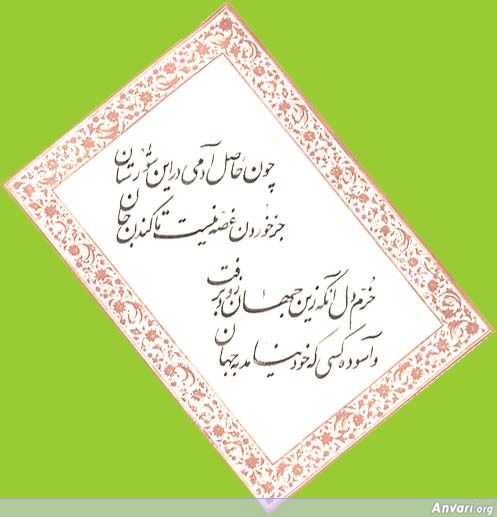 چون حاصل آدمی در این شورستان
جز خوردن غصّه نیست تا کندن جان
خرّم دل آنکه زین جهان زود برفت
و آسوده کسی که خود نیامد به جهان
Anvari.org